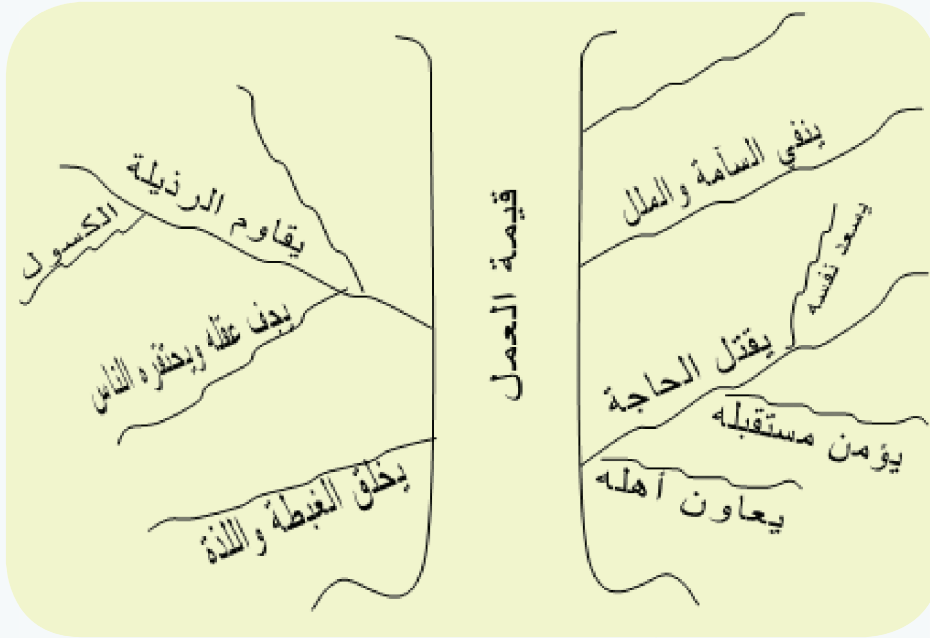 قيمة العمل
ينفي السآمة والملل
يسعد نفسه
يقتل الحاجة
يؤمن مستقبله
يعاون أهله
يقاوم الرذيلة
الكسول
يجف عقله ويحتقره الناس
يخلق الغبطة واللذة